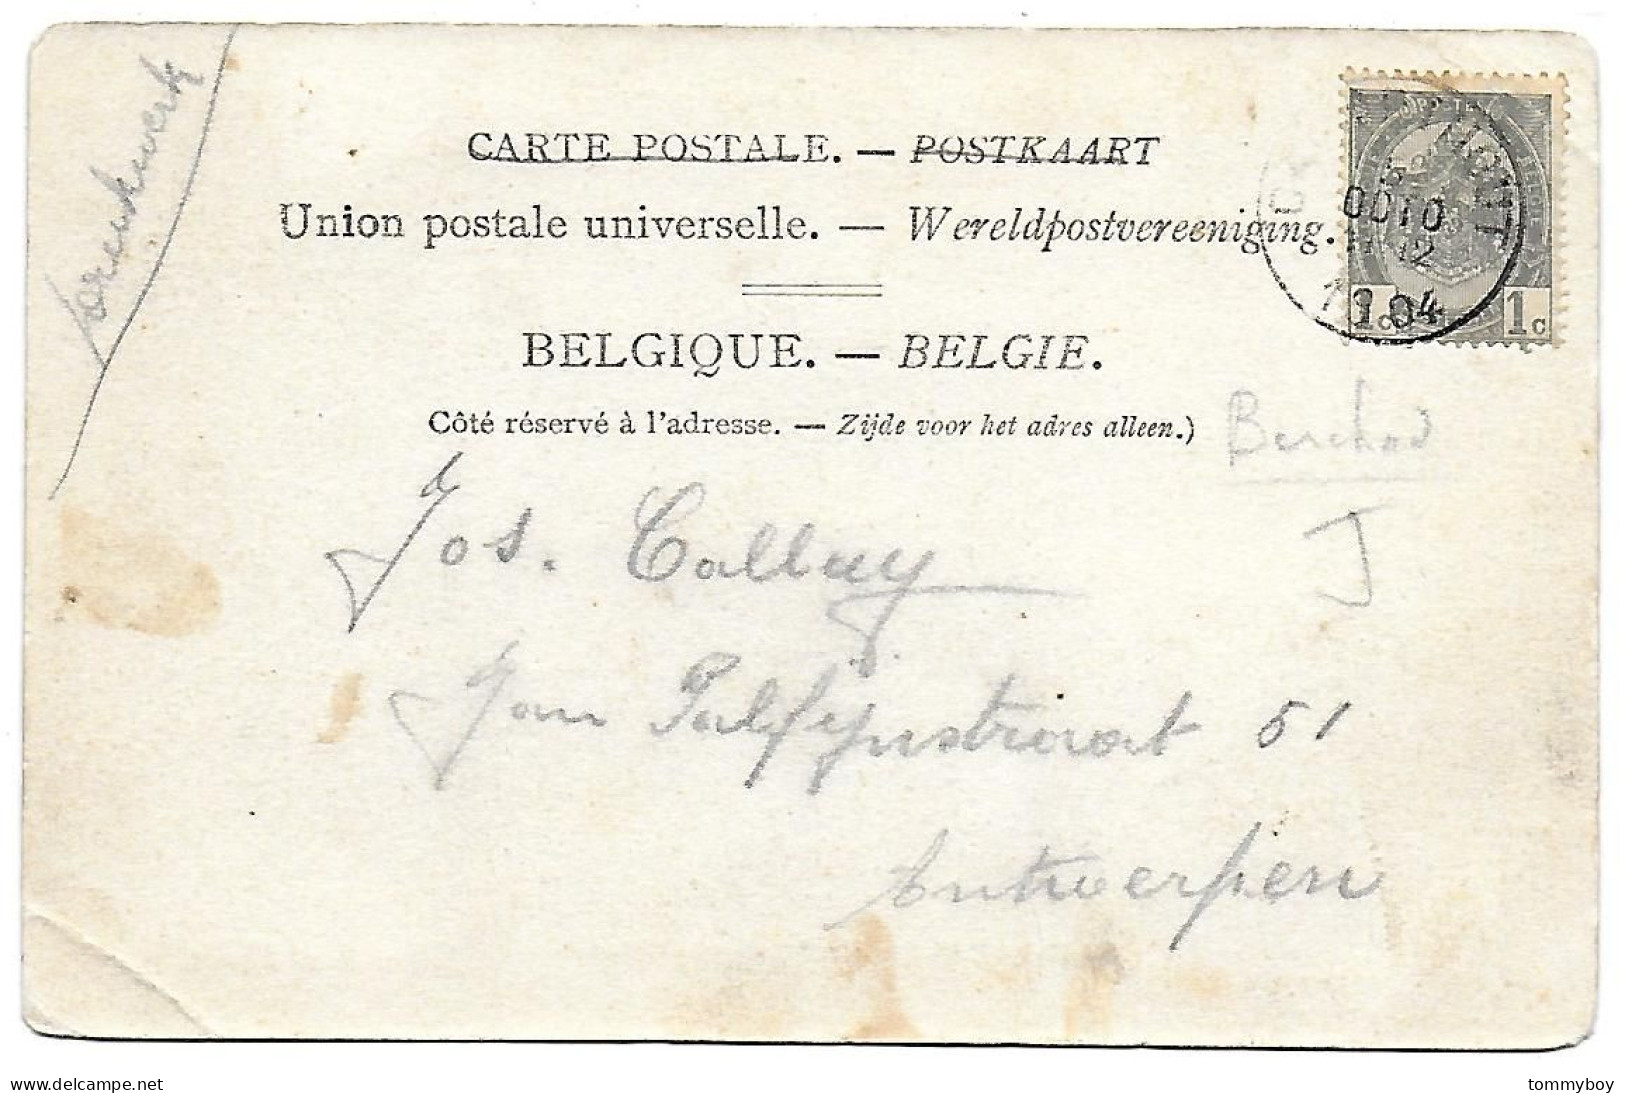 CARTE POSTALE. — POSTKAART
Union postale universelle. — Wereldpostvereeniging.
BELGIQUE. — BELGIE.
Côté réservé à l'adresse. — Zijde voor het adres alleen.)
10
12
1904
1c 1c
J
Jos. Calluy
Jan Palfijnstraat 51
Antwerpen
www.delcampe.net
tommyboy